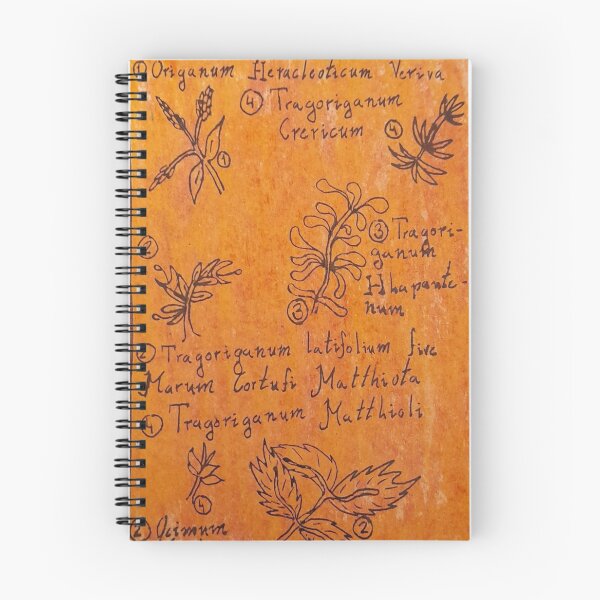 ① Origanum Heracleoticum Veriva
④ Tragoriganum
Crericum
④
①
③ Tragori-
ganum
Hhapante-
num
②
③
② Tragoriganum latifolium five
Marum Cortufi Matthiota
④ Tragoriganum Matthioli
④
②
② Ocimum